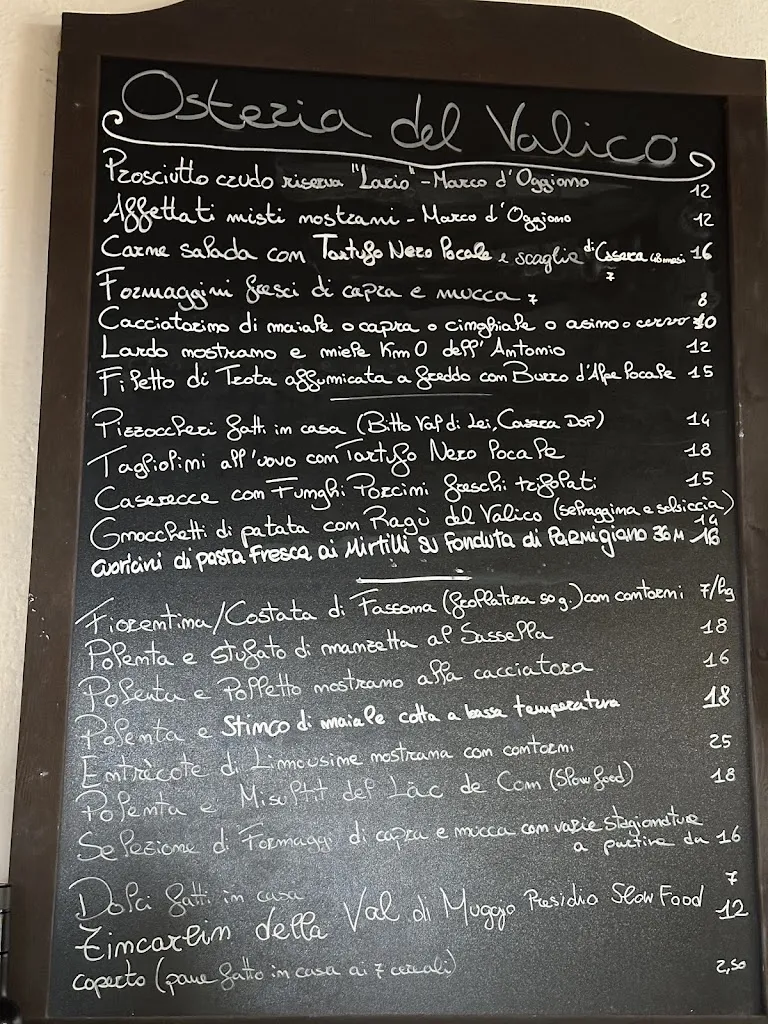 Osteria del Valico
Prosciutto crudo riserva "Lario" - Marco d'Oggiono 12
Affettati misti nostrani - Marco d'Oggiono 12
Carne salada con Tartufo Nero Locale e scaglie di Casera (18 mesi) 16
7
Formaggini fresci di capra e mucca 7 8
Cacciatorino di maiale o capra o cinghiale o asino o cervo 10
Lardo nostrano e miele Km 0 dell'Antonio 12
Filetto di Trota affumicata a freddo con Burro d'Alpe Locale 15
Pizzoccheri fatti in casa (Bitto Val di Lei, Casera DOP) 14
Tagliolini all'uovo con Tartufo Nero Locale 18
Caserecce con Funghi Porcini freschi trifolati 15
Gnocchetti di patata con Ragù del Valico (selvaggina e salsiccia) 14
cuoricini di pasta fresca ai Mirtilli su fonduta di Parmigiano 36 M 16
Fiorentina/Costata di Fassona (frollatura 50 g.) con contorni 7/hg
Polenta e stufato di manzetta al Sassella 18
Polenta e Polletto nostrano alla cacciatora 16
Polenta e Stinco di maiale cotto a bassa temperatura 18
Entrècote di Limousine nostrana con contorni 25
Polenta e Missultit del Lâc de Com (Slow food) 18
Selezione di Formaggi di capra e mucca con varie stagionature
a partire da 16
Dolci fatti in casa 7
Zincarlin della Val di Muggio Presidio Slow Food 12
coperto (pane fatto in casa ai 7 cereali) 2,50